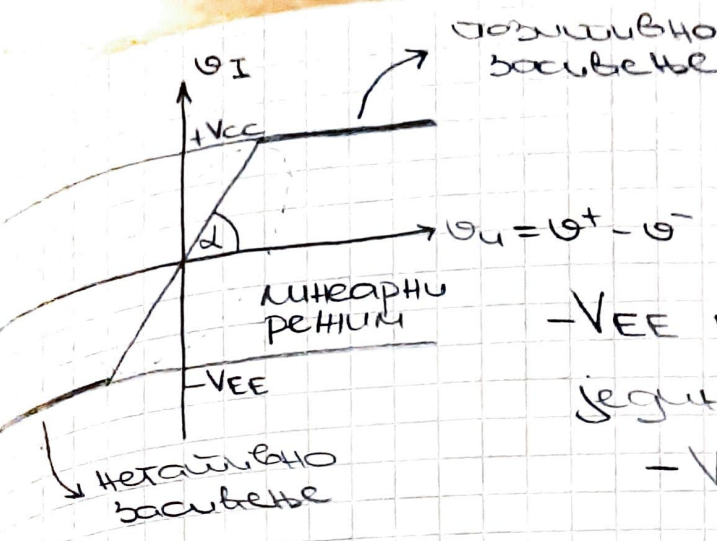 позитивно
засићење
υI
+VCC
α
υu = υ⁺ - υ⁻
линеарни
режим
-VEE
-VEE
једи
-V
негативно
засићење